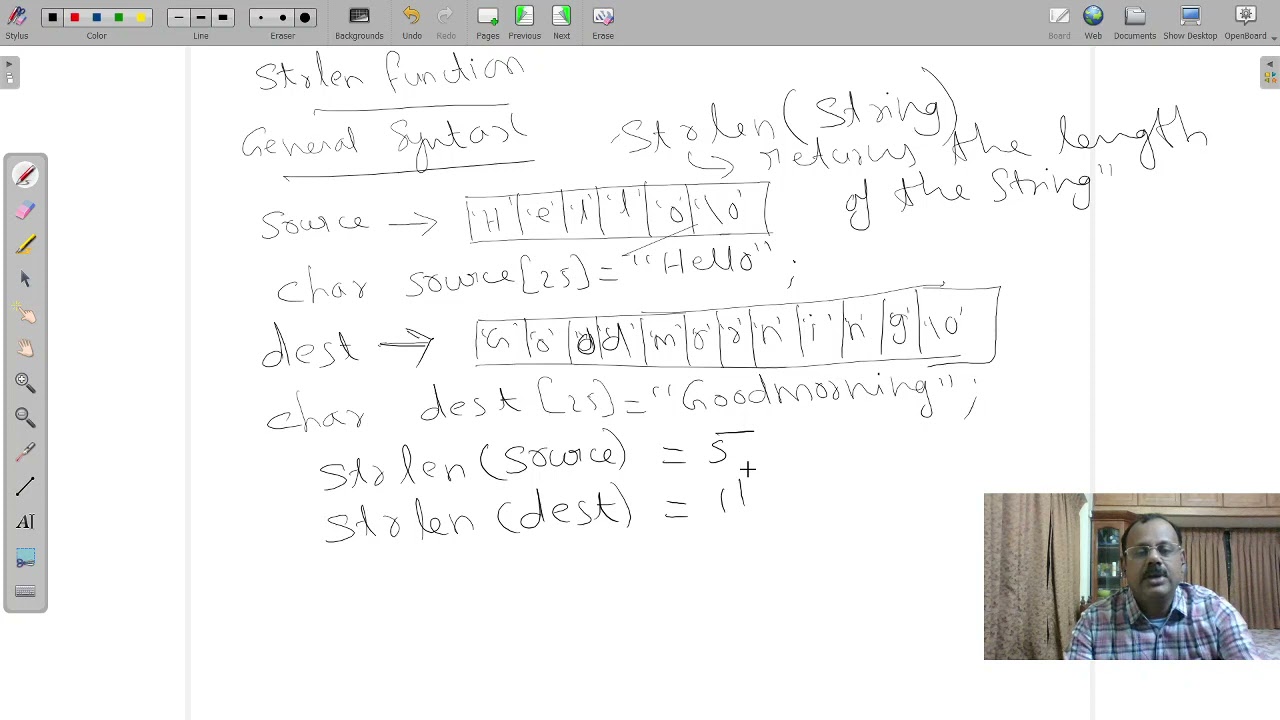 Stylus Color Line Eraser Backgrounds Undo Redo Pages Previous Next Erase Board Web Documents Show Desktop OpenBoard
Strlen function
General Syntax
Strlen(String)
returns the length
of the String"
source → 'H' 'e' 'l' 'l' 'o' '\0'
char source[25] = "Hello";
dest → 'G' 'o' 'o' 'd' 'm' 'o' 'r' 'n' 'i' 'n' 'g' '\0'
char dest[25] = "Goodmorning";
strlen(source) = 5
strlen(dest) = 11